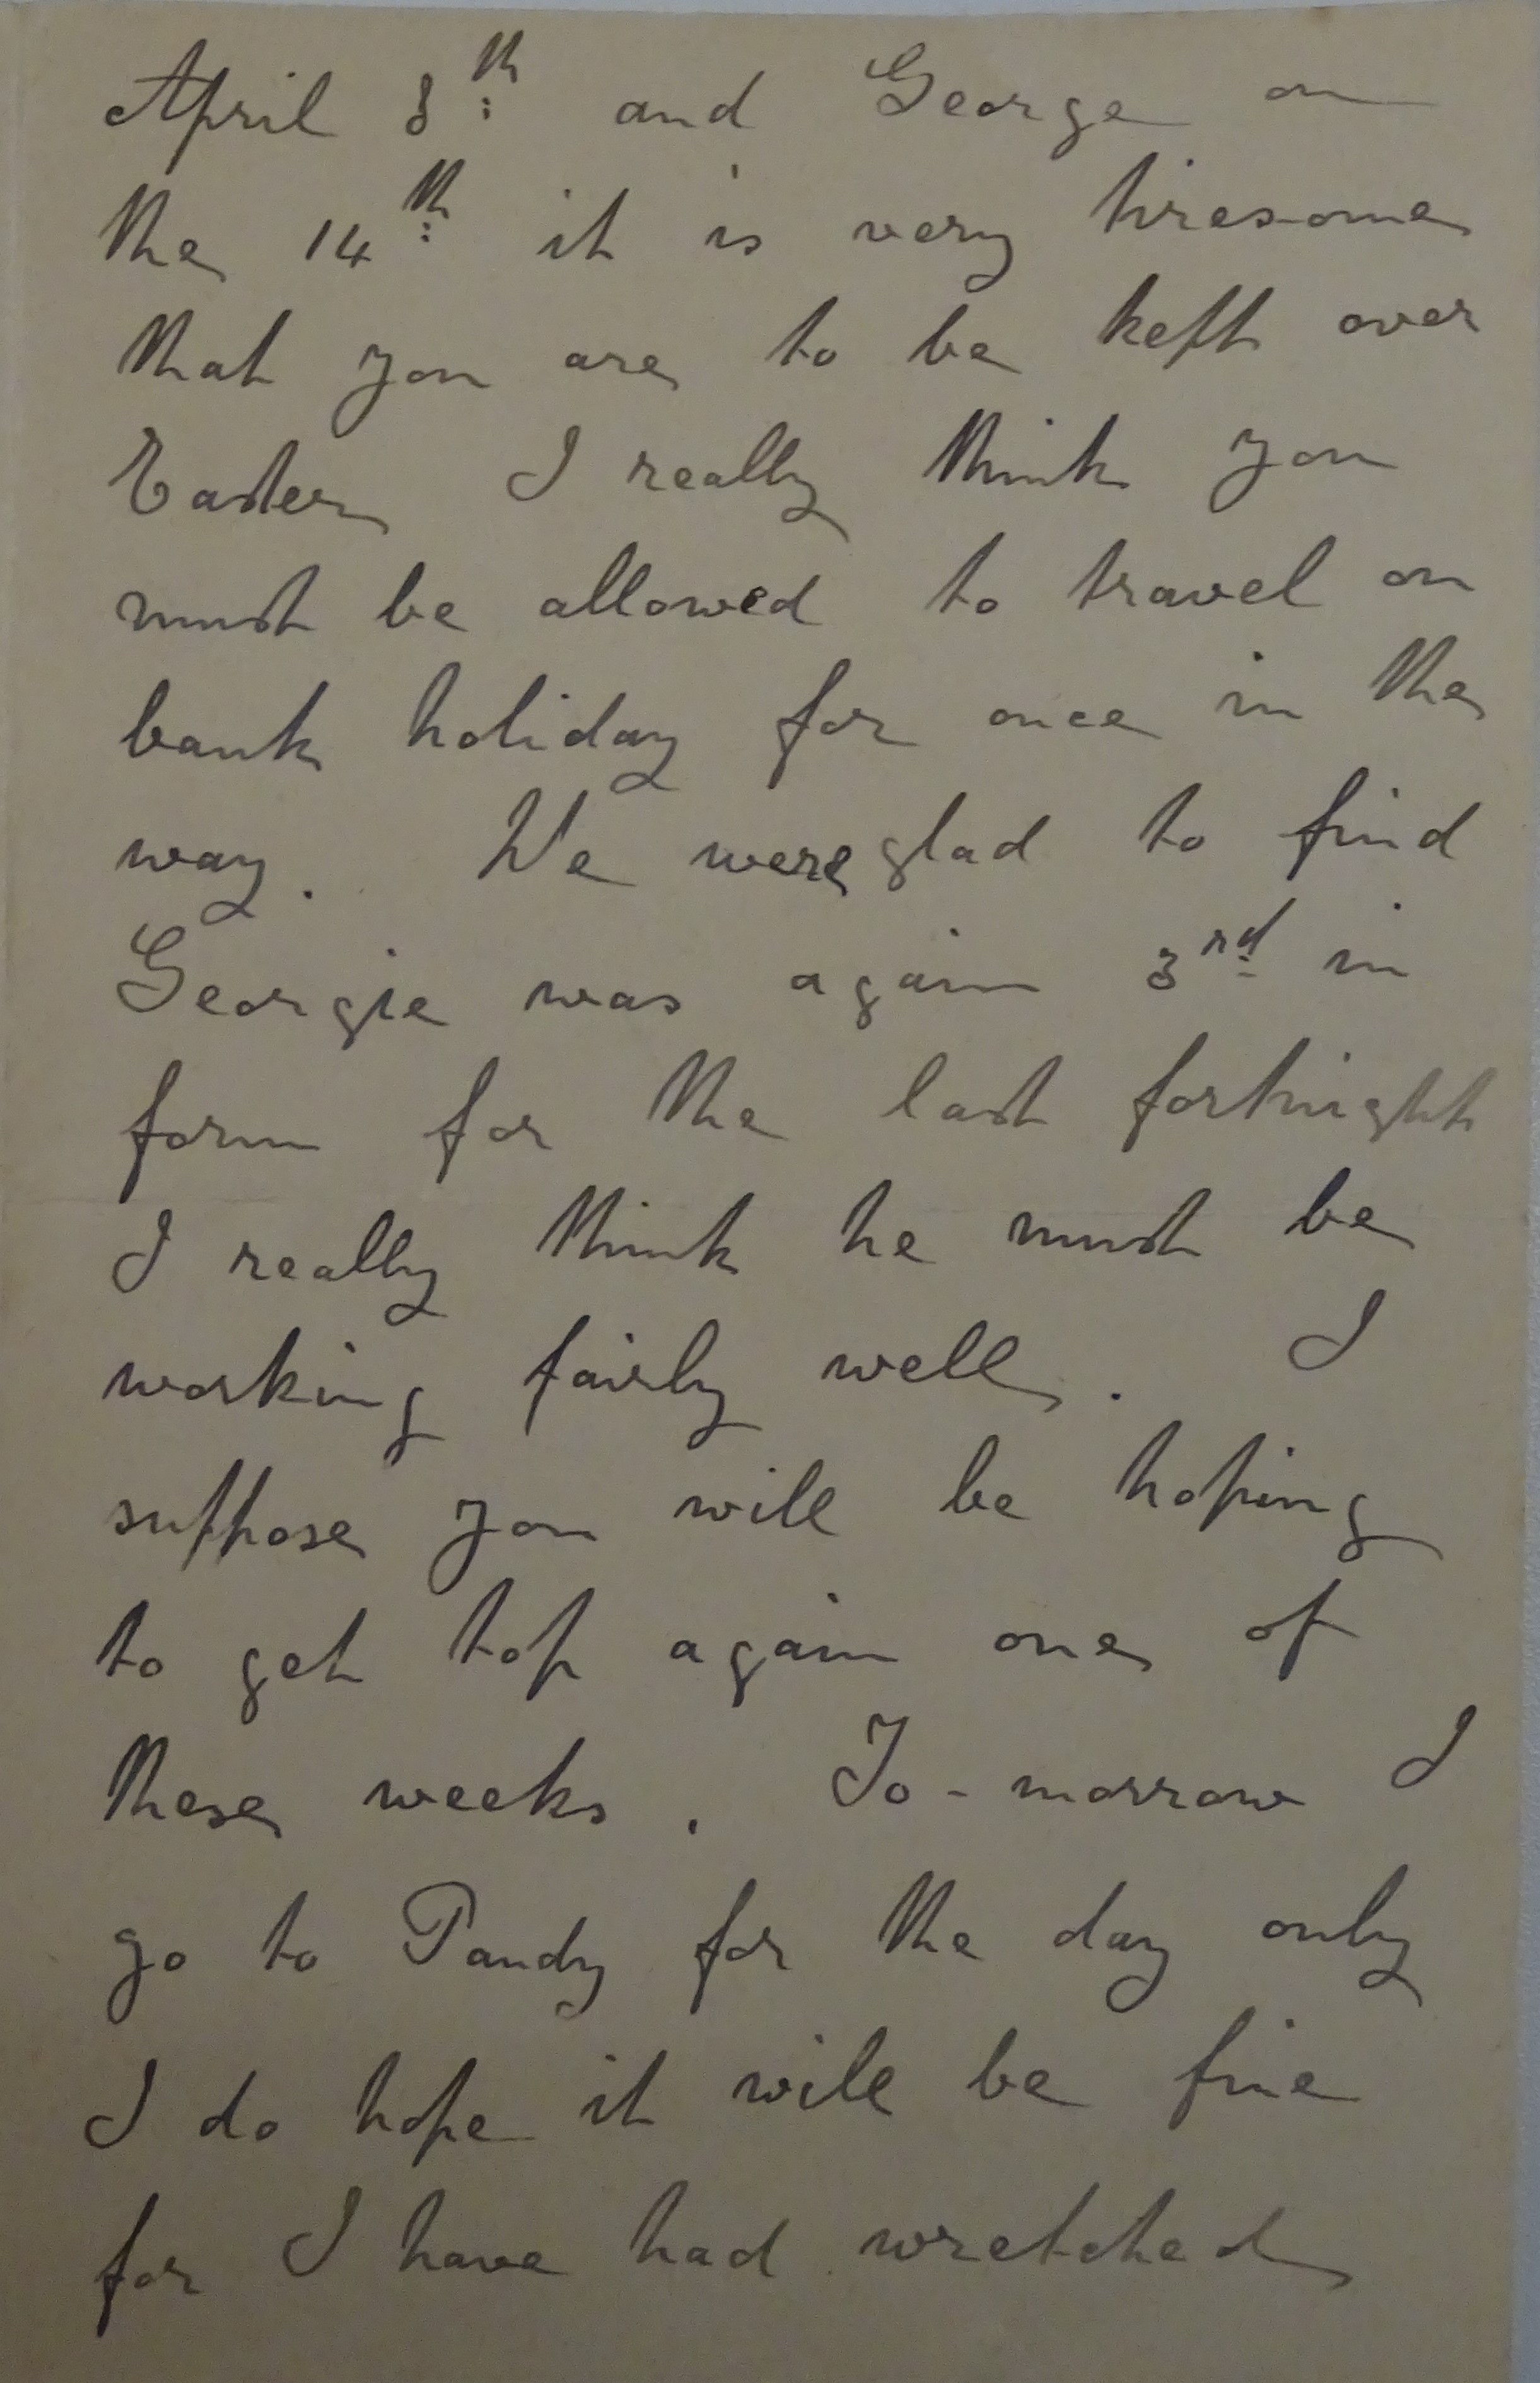 April 8th and George on
the 14th it is very tiresome
that you are to be kept over
Easter I really think you
must be allowed to travel on
bank holiday for once in the
way. We were glad to find
Georgie was again 3rd in
form for the last fortnight
I really think he must be
working fairly well. I
suppose you will be hoping
to get top again one of
these weeks. To-morrow I
go to Pandy for the day only
I do hope it will be fine
for I have had wretched